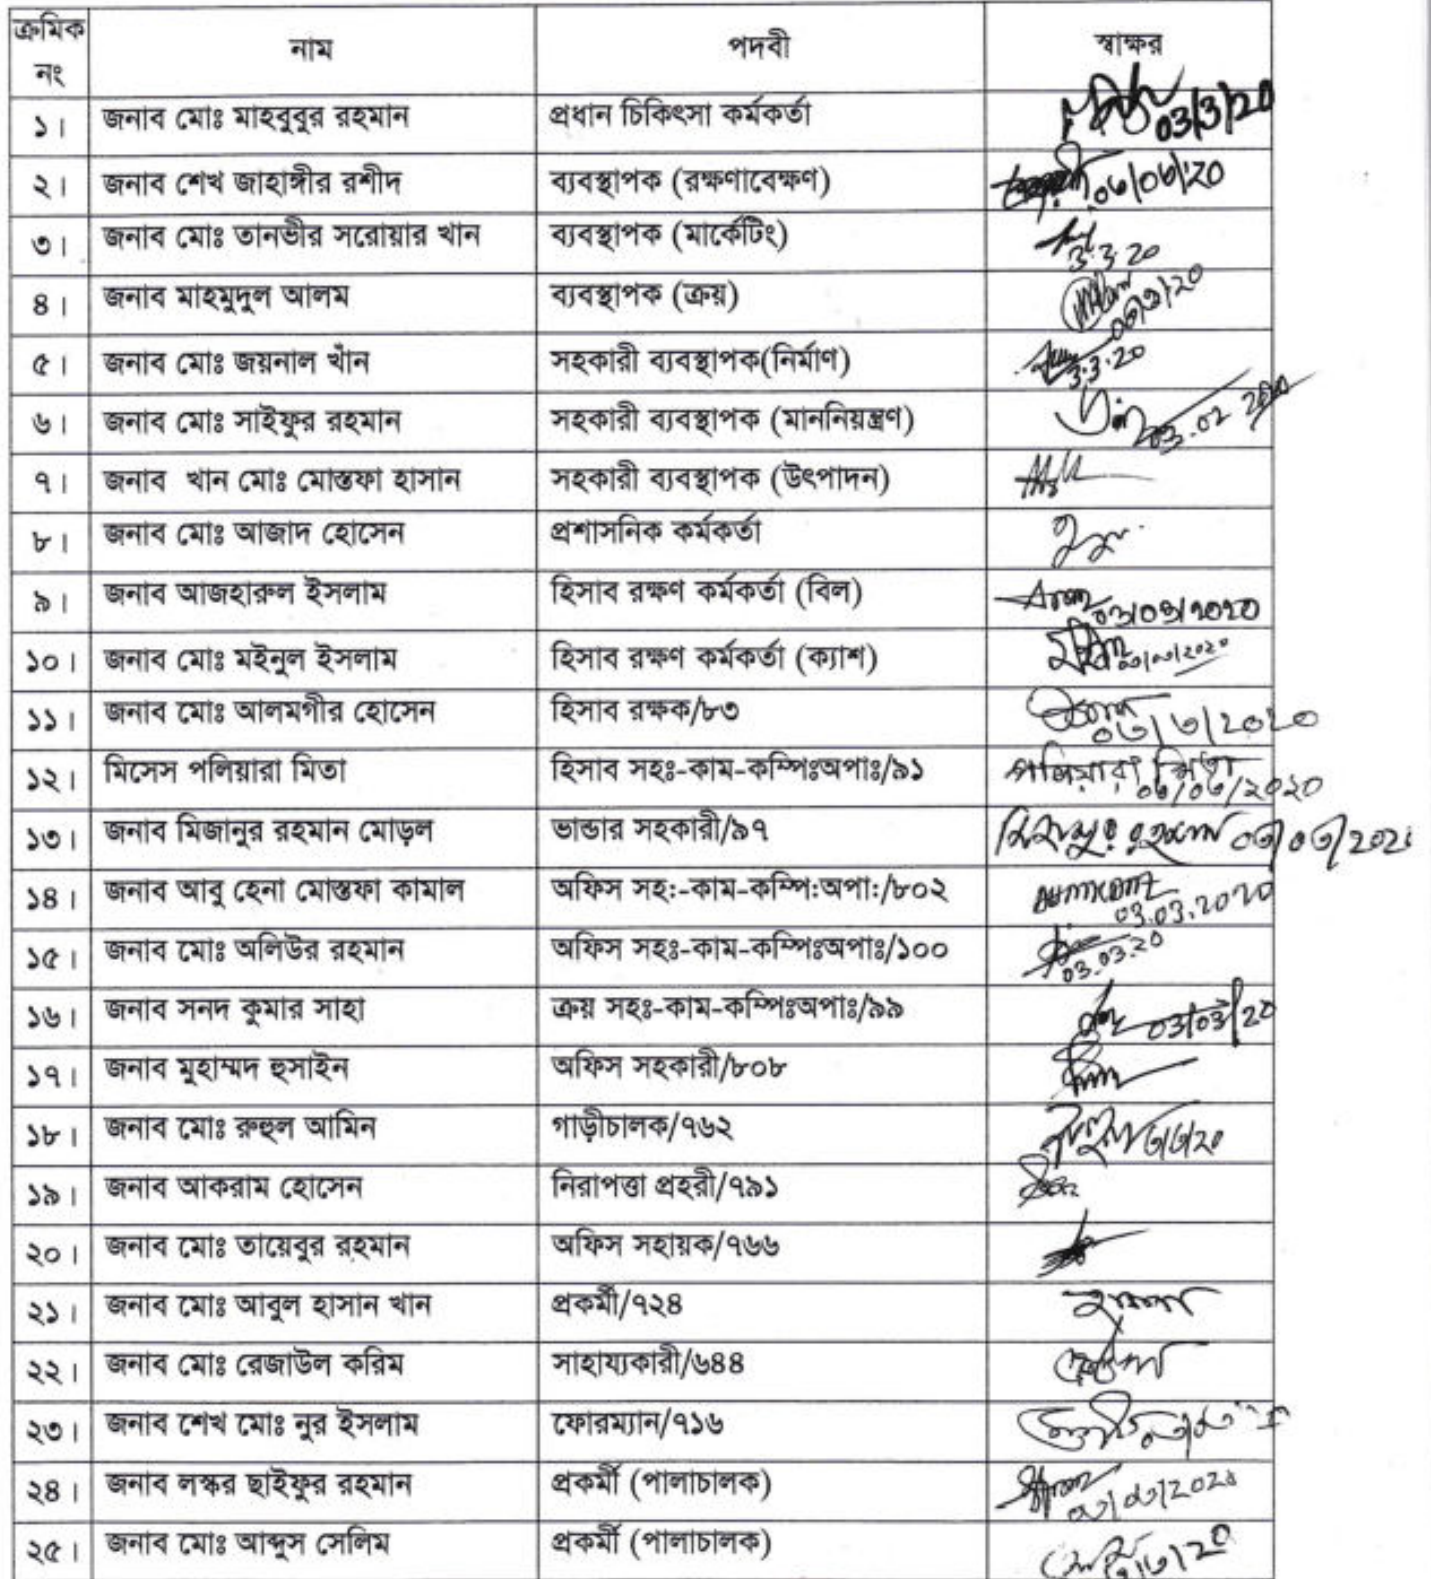 ক্রমিক নং নাম পদবী স্বাক্ষর
১। জনাব মোঃ মাহবুবুর রহমান প্রধান চিকিৎসা কর্মকর্তা 03/3/20
২। জনাব শেখ জাহাঙ্গীর রশীদ ব্যবস্থাপক (রক্ষণাবেক্ষণ) ০৩/০৩/২০
৩। জনাব মোঃ তানভীর সরোয়ার খান ব্যবস্থাপক (মার্কেটিং) 3.3.20
৪। জনাব মাহমুদুল আলম ব্যবস্থাপক (ক্রয়)
৫। জনাব মোঃ জয়নাল খাঁন সহকারী ব্যবস্থাপক(নির্মাণ) 3.3.20
৬। জনাব মোঃ সাইফুর রহমান সহকারী ব্যবস্থাপক (মাননিয়ন্ত্রণ) 03.02 2020
৭। জনাব খান মোঃ মোস্তফা হাসান সহকারী ব্যবস্থাপক (উৎপাদন)
৮। জনাব মোঃ আজাদ হোসেন প্রশাসনিক কর্মকর্তা
৯। জনাব আজহারুল ইসলাম হিসাব রক্ষণ কর্মকর্তা (বিল)
১০। জনাব মোঃ মইনুল ইসলাম হিসাব রক্ষণ কর্মকর্তা (ক্যাশ) ০৩/০৩/২০২০
১১। জনাব মোঃ আলমগীর হোসেন হিসাব রক্ষক/৮৩ ০৩/৩/২০২০
১২। মিসেস পলিয়ারা মিতা হিসাব সহঃ-কাম-কম্পিঃঅপাঃ/৯১ পলিয়ারা মিতা ০৩/০৩/২০২০
১৩। জনাব মিজানুর রহমান মোড়ল ভান্ডার সহকারী/৯৭ মিজানুর রহমান ০৩/০৩/২০২০
১৪। জনাব আবু হেনা মোস্তফা কামাল অফিস সহ:-কাম-কম্পি:অপা:/৮০২ 03.03.2020
১৫। জনাব মোঃ অলিউর রহমান অফিস সহঃ-কাম-কম্পিঃঅপাঃ/১০০ 03.03.20
১৬। জনাব সনদ কুমার সাহা ক্রয় সহঃ-কাম-কম্পিঃঅপাঃ/৯৯ 03/03/20
১৭। জনাব মুহাম্মদ হুসাইন অফিস সহকারী/৮০৮
১৮। জনাব মোঃ রুহুল আমিন গাড়ীচালক/৭৬২ ৩/৩/২০
১৯। জনাব আকরাম হোসেন নিরাপত্তা প্রহরী/৭৯১
২০। জনাব মোঃ তায়েবুর রহমান অফিস সহায়ক/৭৬৬
২১। জনাব মোঃ আবুল হাসান খান প্রকর্মী/৭২৪
২২। জনাব মোঃ রেজাউল করিম সাহায্যকারী/৬৪৪
২৩। জনাব শেখ মোঃ নুর ইসলাম ফোরম্যান/৭১৬
২৪। জনাব লস্কর ছাইফুর রহমান প্রকর্মী (পালাচালক) ০৩/০৩/২০২০
২৫। জনাব মোঃ আব্দুস সেলিম প্রকর্মী (পালাচালক)